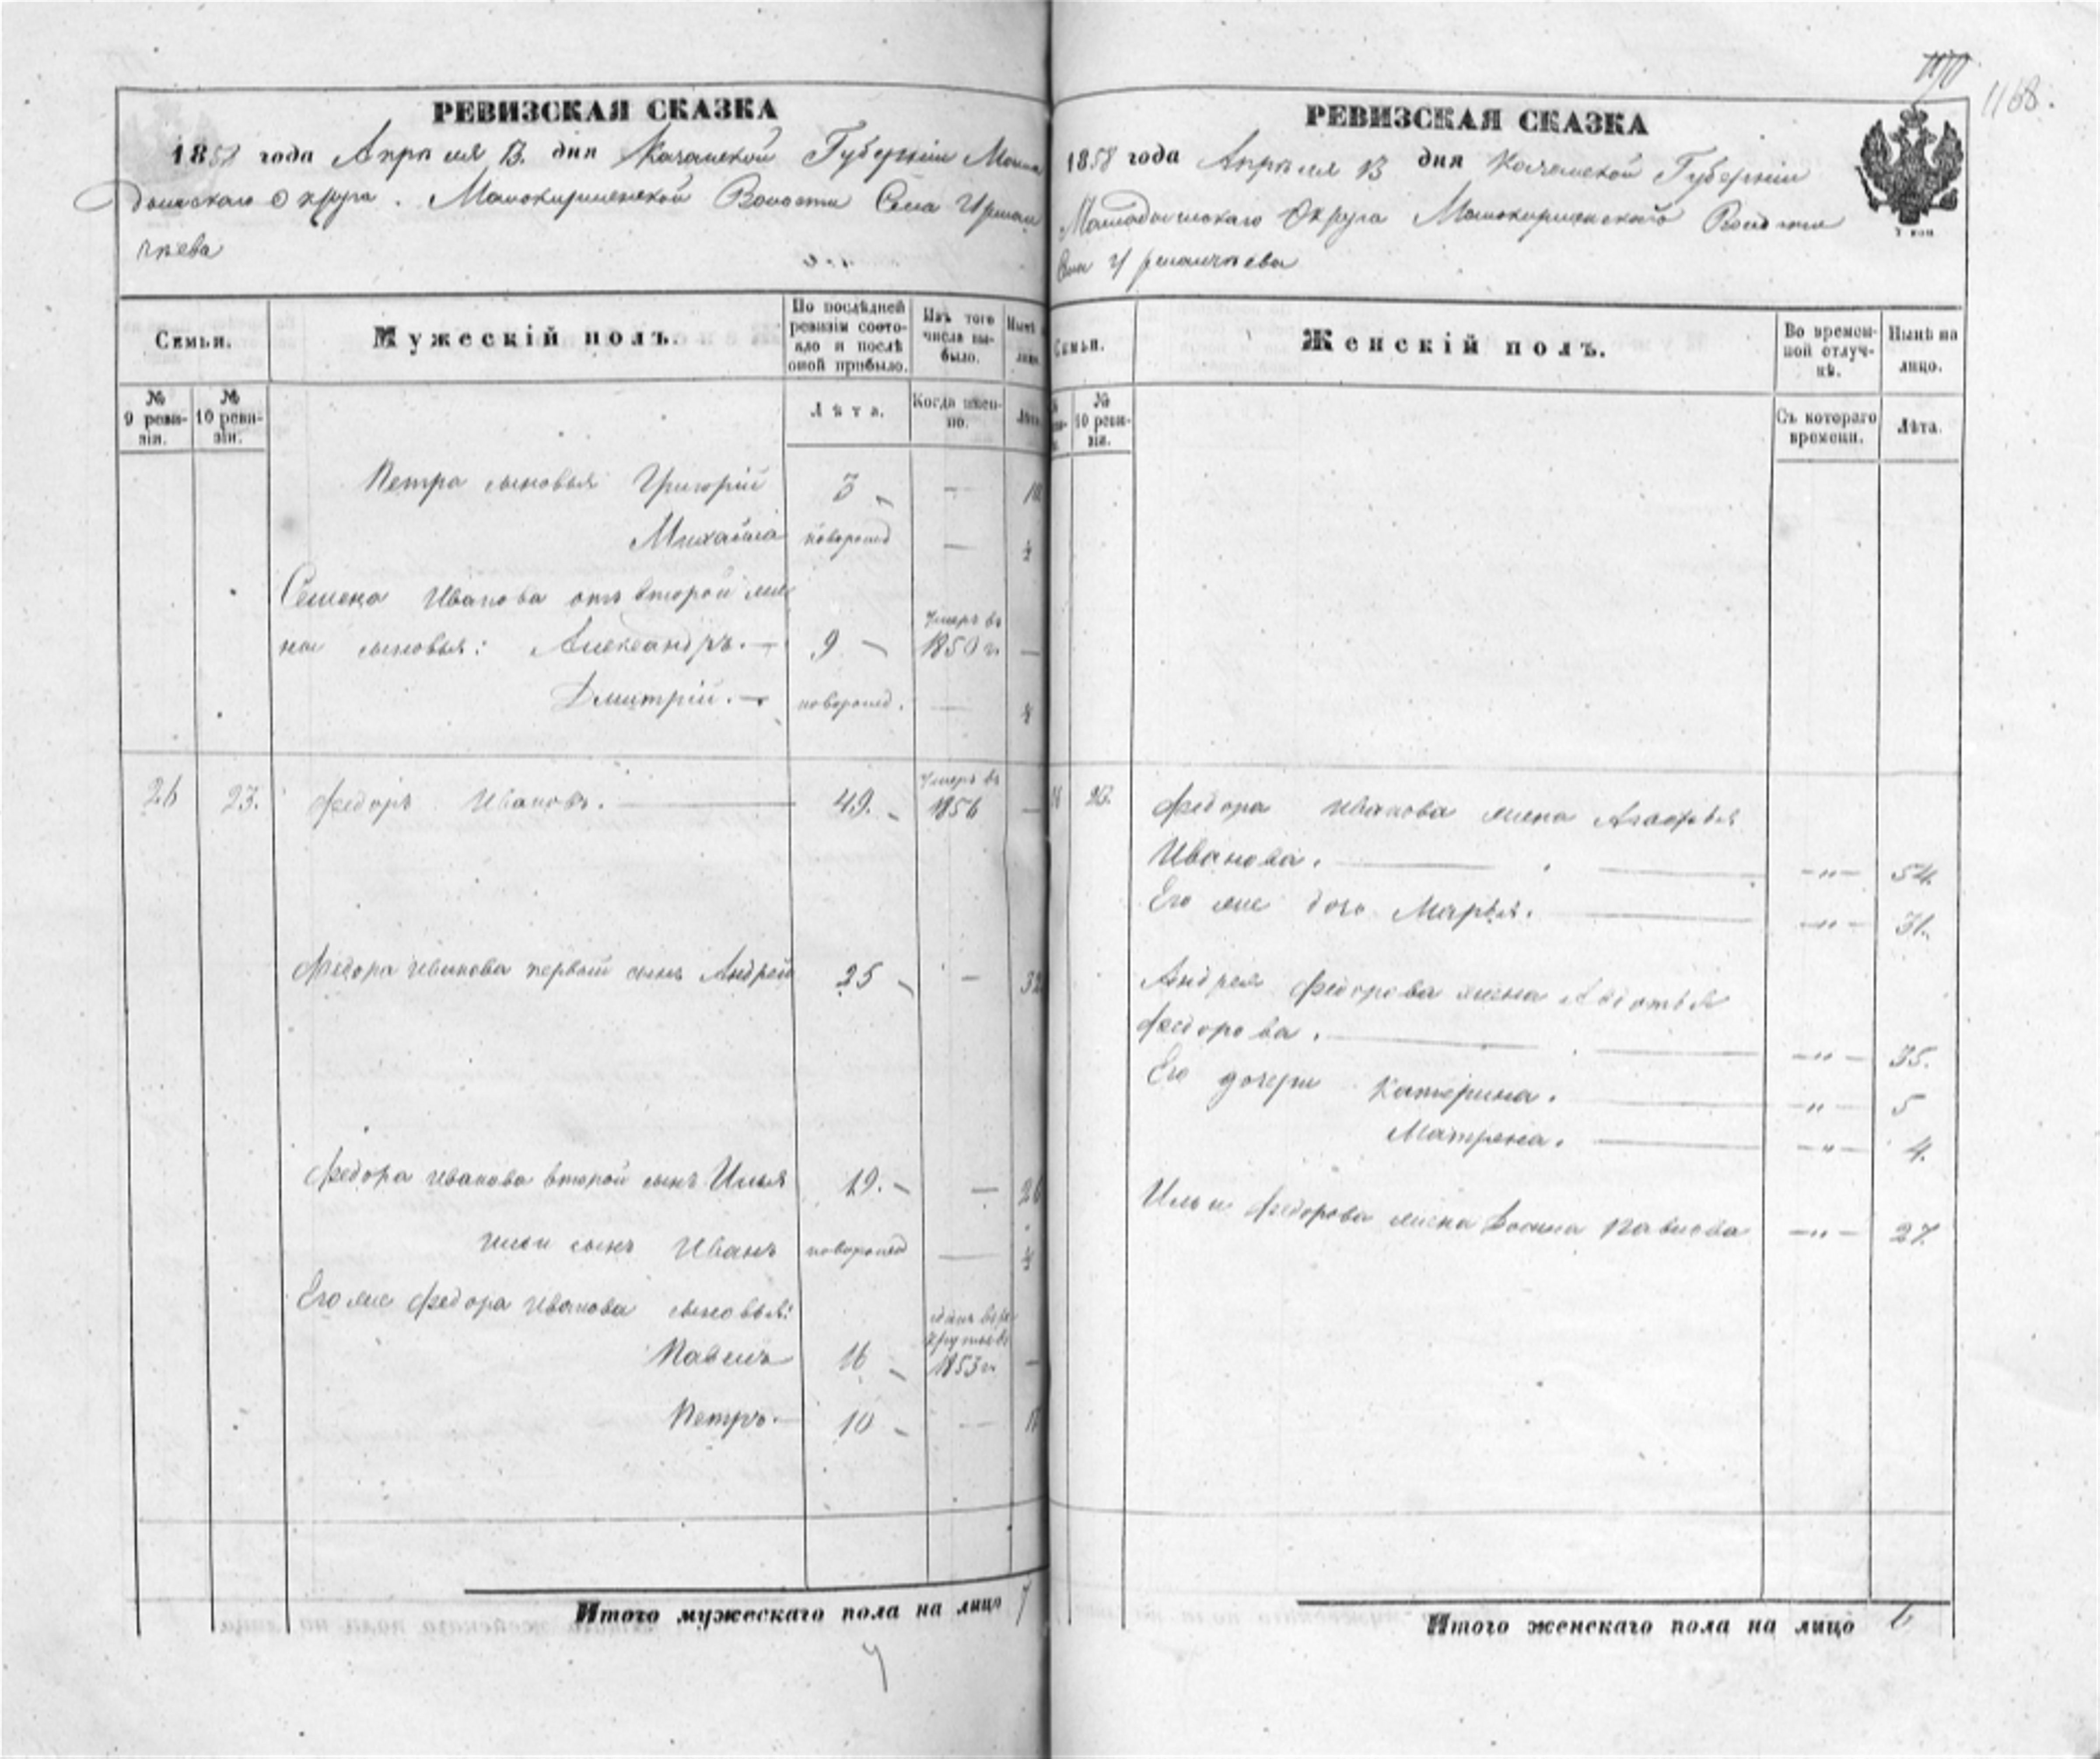 1168.
РЕВИЗСКАЯ СКАЗКА
1858 года Апрѣля 13. дня Казанской Губерніи Мама
дышскаго Округа. Мамокирменской Волости Села Урман
чѣева
Семьи.
Мужескій полъ.
По послѣдней ревизіи состояло и послѣ оной прибыло.
Изъ того числа выбыло.
Нынѣ
лицо.
№ 9 ревизіи.
№ 10 ревизіи.
Лѣта.
Когда именно.
Лѣта.
Петра сыновья Григорій 3 —
Михайла новорожд — ½
Семена Иванова отъ второй же
ны сыновья: Александръ. — 9 — умеръ въ 1850 г. —
Дмитрій. — новорожд. —
26 23. Федоръ Ивановъ. — 49. — умеръ въ 1856 —
Федора Иванова первый сынъ Андрей 25 — — 32
Федора Иванова второй сынъ Илья 19. — — 26
Ильи сынъ Иванъ новорожд —
Его же Федора Иванова сыновья:
Павелъ 16 — 1853 г. —
Петръ. — 10 — — 17
Итого мужескаго пола на лицо 7
РЕВИЗСКАЯ СКАЗКА
1858 года Апрѣля 13 дня Казанской Губерніи
Мамадышскаго Округа Мамокирменской Волости
Села Урманчѣева
Семьи.
Женскій полъ.
Во временной отлучкѣ.
Нынѣ на лицо.
№ 10 ревизіи.
Съ котораго времени.
Лѣта.
23. Федора Иванова жена Агафья
Иванова. — — — " — 54.
Его же дочь Марья. — — " — 31.
Андрея Федорова жена Авдотья
Федорова. — — — " — 35.
Его дочери Катерина. — — " — 5
Матрена. — — " — 4.
Ильи Федорова жена Павлова — " — 27.
Итого женскаго пола на лицо 6